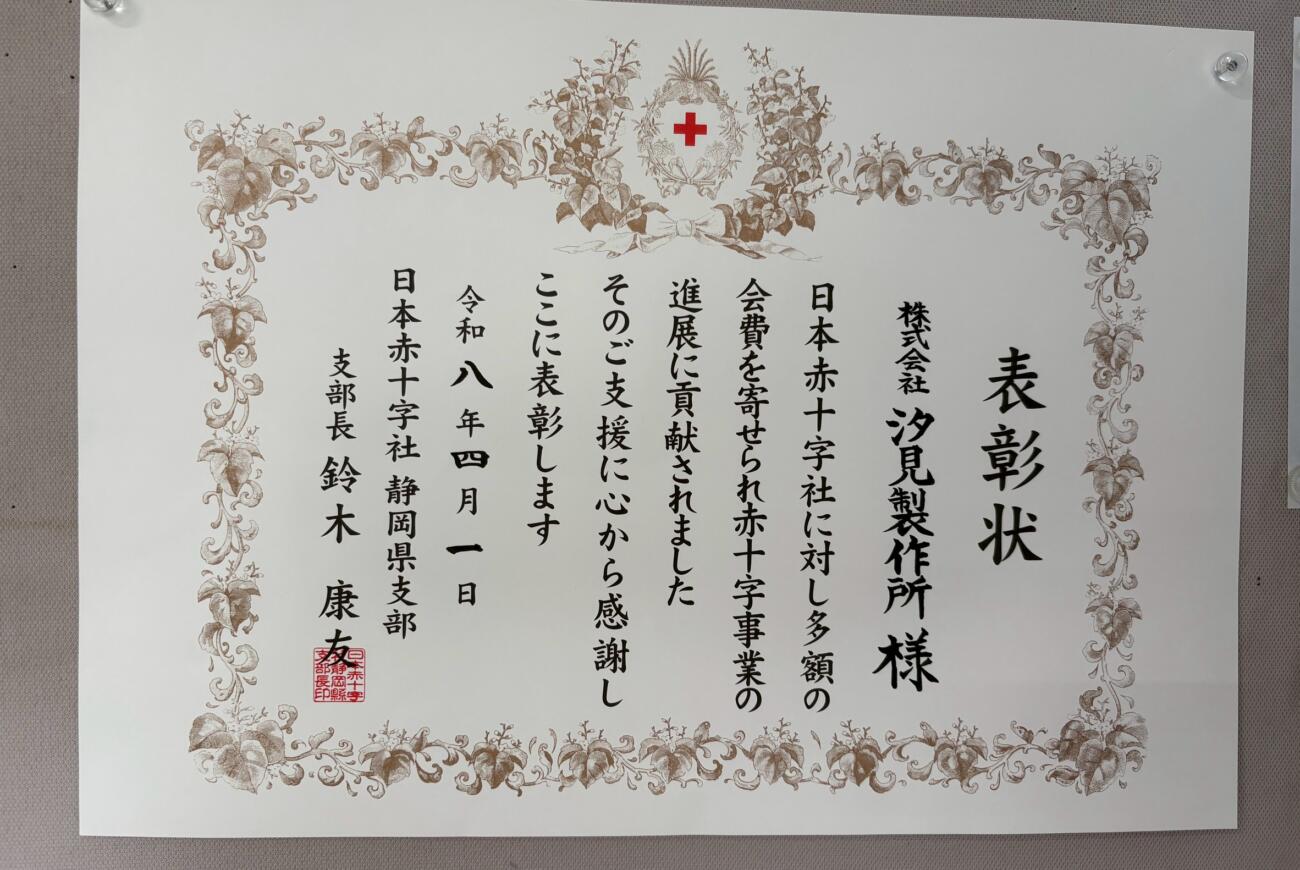 表彰状
株式会社 汐見製作所 様
日本赤十字社に対し多額の
会費を寄せられ赤十字事業の
進展に貢献されました
そのご支援に心から感謝し
ここに表彰します
令和八年四月一日
日本赤十字社 静岡県支部
支部長 鈴木 康友
日本赤十字
社静岡縣
支部長印